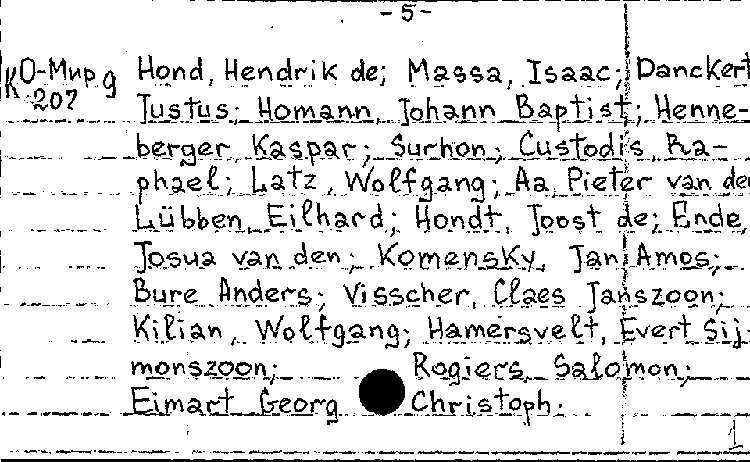 -5-
КО-Мир g Hond, Hendrik de; Massa, Isaac; Danckert
207 Justus; Homann, Johann Baptist; Henne-
berger, Kaspar; Surhon; Custodis, Ra-
phael; Latz, Wolfgang; Aa, Pieter van der
Lübben, Eilhard; Hondt, Joost de; Ende,
Josua van den; Komensky, Jan Amos;
Bure Anders; Visscher, Claes Janszoon;
Kilian, Wolfgang; Hamersvelt, Evert Sij-
monszoon; Rogiers, Salomon;
Eimart Georg Christoph.
1